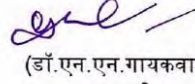 (डॉ.एन.एन.गायकवा